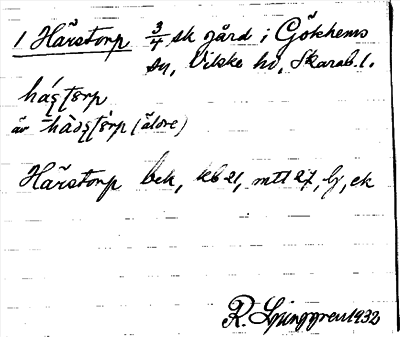 1 Härstorp 3/4 sk gård i Gökhems
sn, Vilske hd, Skarab. l.
háʂtɔrp
äv. hàʂtɔrp (äldre)
Härstorp bek, kb 21, mtl 27, lj, ek
R. Ljunggren 1932